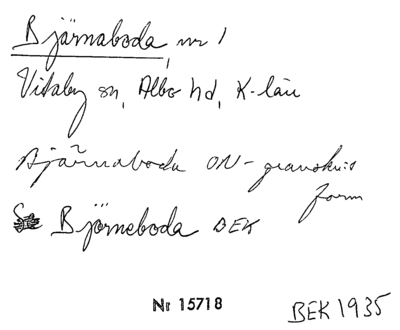 Bjärnaboda, nr 1
Vitaby sn, Albo hd, K-län
Bjärnaboda ON-granskn:s
form
Björneboda BEK
Nr 15718
BEK 1935